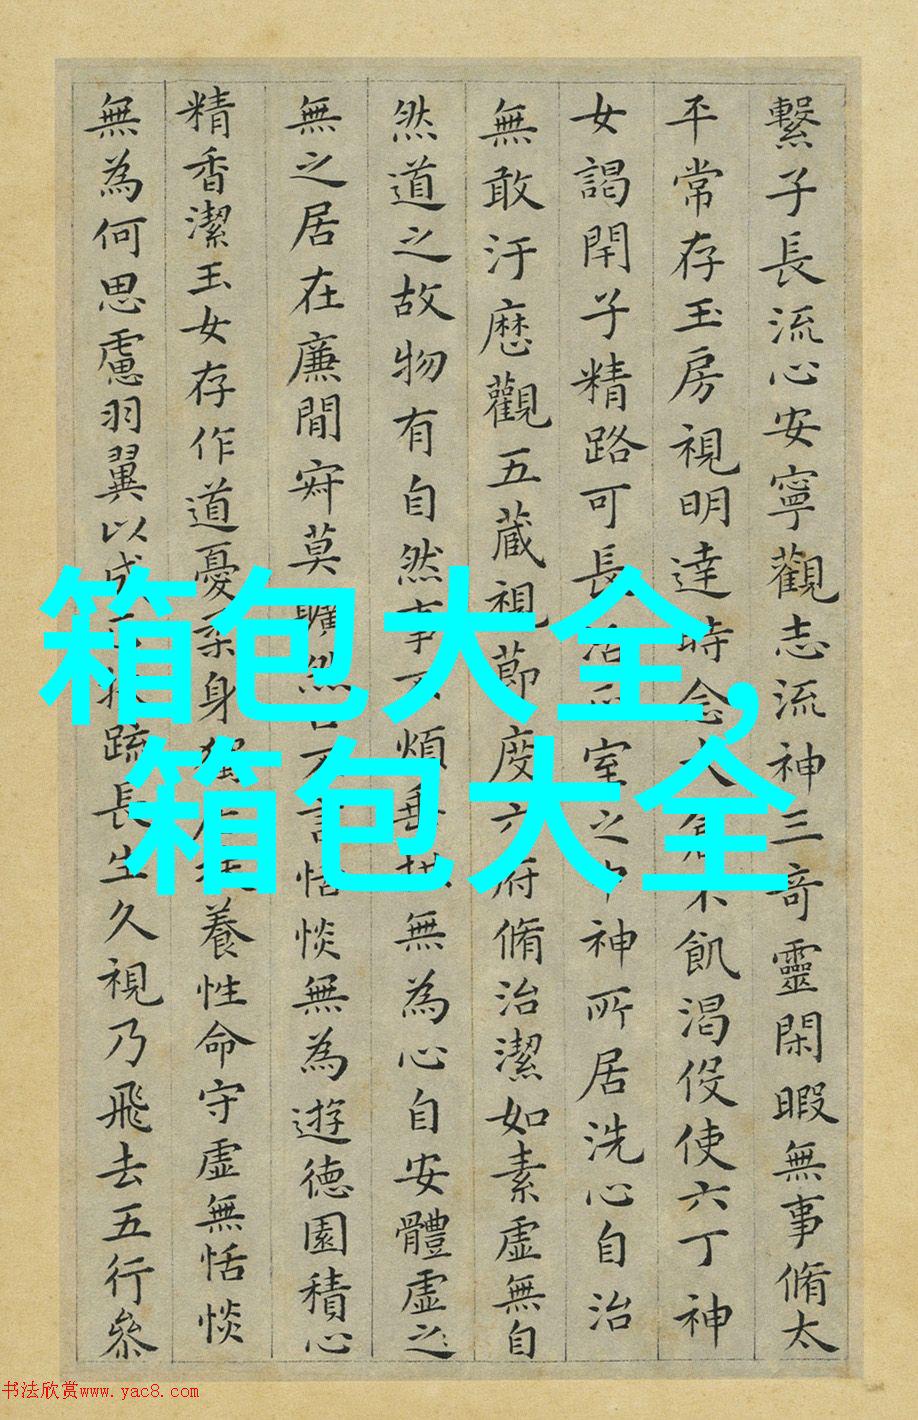 繫子長流心安寧觀志流神三竒靈閑暇無事脩太
平常存玉房視明達時念大倉不飢渴役使六丁神
女謁閇子精路可長活正室之中神所居洗心自治
無敢汙歷觀五藏視節度六府脩治潔如素虛無自
然道之故物有自然事不煩垂拱無為心自安體虛之
無之居在廉間寂莫曠然口不言恬惔無為遊德園積心
精香潔玉女存作道憂柔身獨居扶養性命守虛無恬惔
無為何思慮羽翼以成正扶疏長生久視乃飛去五行參
箱包大全,
箱包大全
书法欣赏www.yac8.com